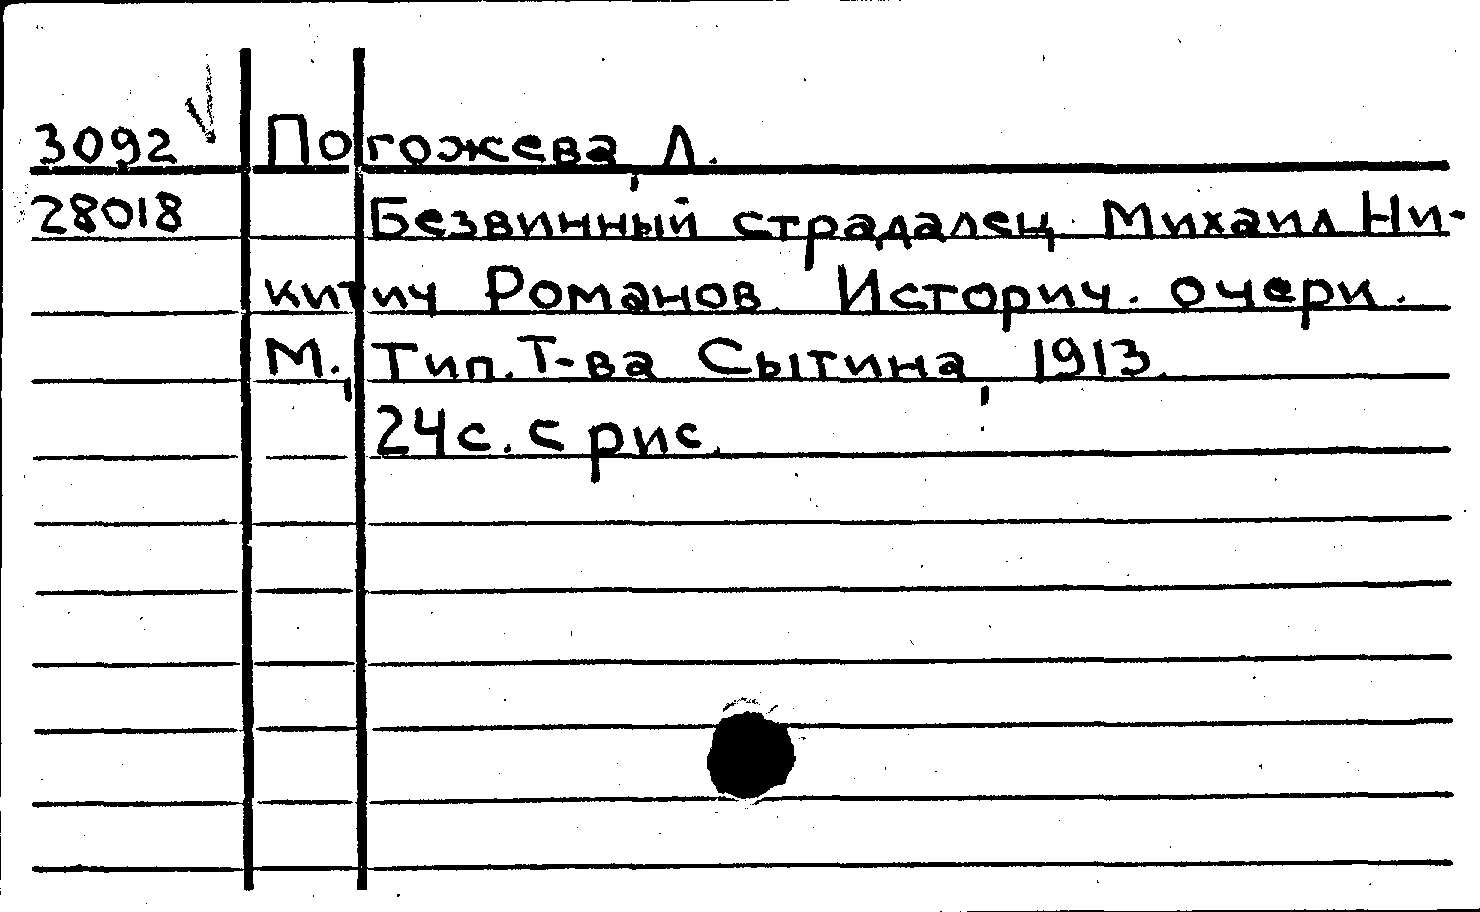 3092 Погожева, Л.
28018 Безвинный страдалец Михаил Ни-
китич Романов. Историч. очерк.
М., Тип. Т-ва Сытина, 1913.
24с. с рис.